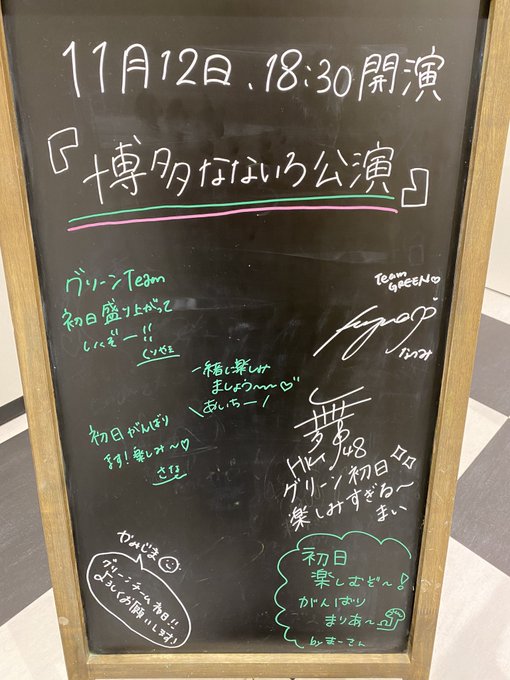 11月12日、18:30開演
『博多なないろ公演』
グリーンTeam
初日盛り上がって
いくぞー!!
くりやま
一緒に楽しみ
ましょう〜〜♡
\あいちー/
初日がんばり
ます!楽しみ〜♡
さな
Team
GREEN♡
なつみ
舞
HKT48
グリーン初日
楽しみすぎる〜
まい
かみじま
グリーンチーム初日!!
よろしくお願いします!
初日
楽しむぞ〜!
がんばり
まりあ〜
byまーさん